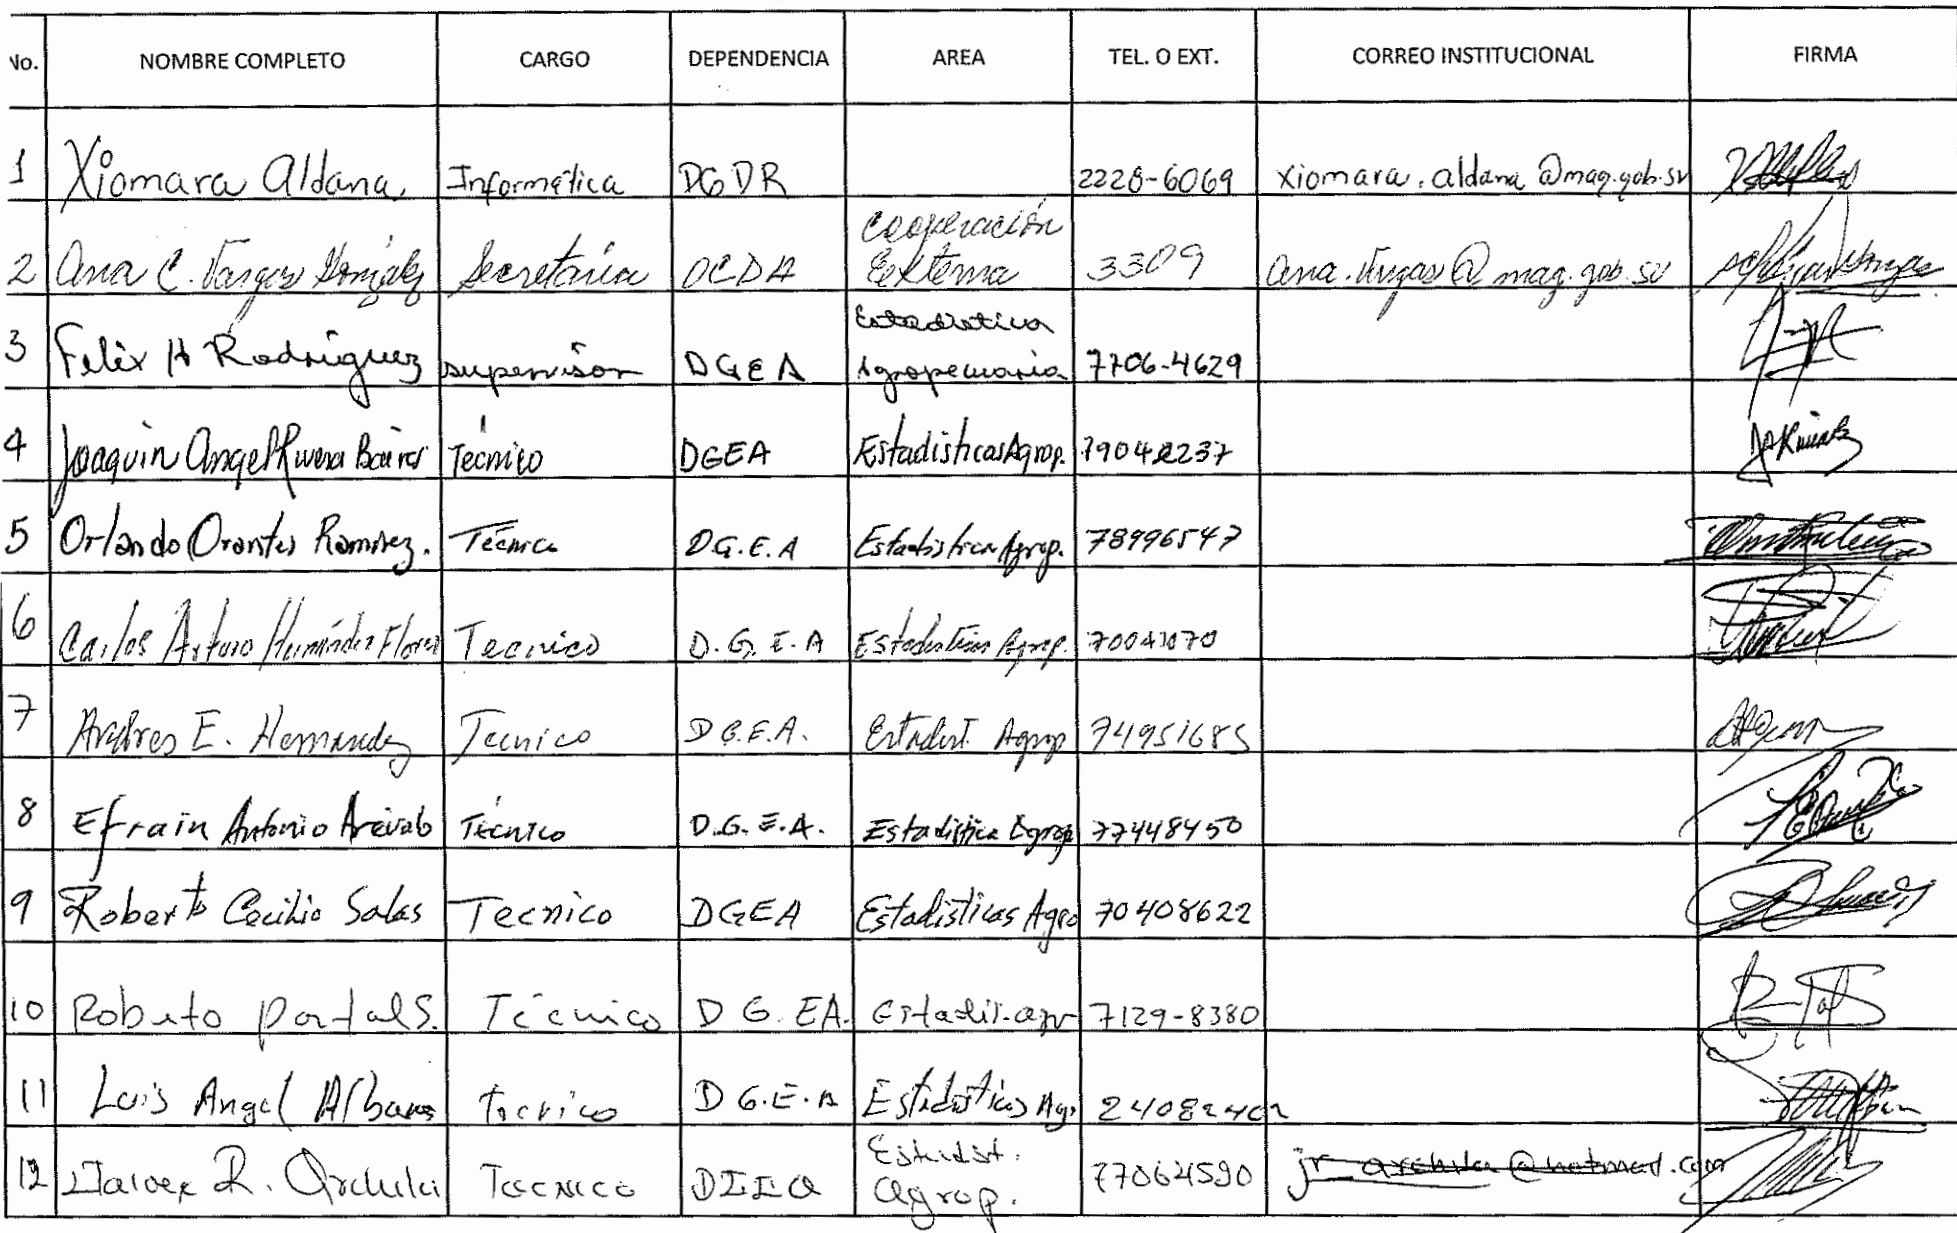 No. NOMBRE COMPLETO CARGO DEPENDENCIA AREA TEL. O EXT. CORREO INSTITUCIONAL FIRMA
1 Xiomara Aldana. Informática DGDR 2228-6069 xiomara.aldana@mag.gob.sv
2 Ana C. Vargas González Secretaria OCDA Cooperación Externa 3309 ana.vargas@mag.gob.sv
3 Felix H Rodriguez supervisor DGEA Estadistica Agropecuaria 7706-4629
4 Joaquin Angel Rivera Técnico DGEA Estadisticas Agrop.
5 Orlando Orantes Ramirez. Técnico D.G.E.A Estadistica Agrop. 78996547
6 Carlos Arturo Hernández Flores Tecnico D.G.E.A Estadisticas Agrop.
7 Andres E. Hernandez Tecnico D.G.E.A. Estadist. Agrop 74951685
8 Efrain Antonio Arévalo Técnico D.G.E.A. Estadistica Agrop 77448450
9 Roberto Cecilio Salas Tecnico DGEA Estadisticas Agro 70408622
10 Roberto Portal S. Técnico D G. EA. 7129-8380
11 Luis Angel Tecnico D G.E.A Estadisticas Ag.
12 R. Archila Tecnico Estadist. Agrop. 77064590 jr archila@hotmail.com